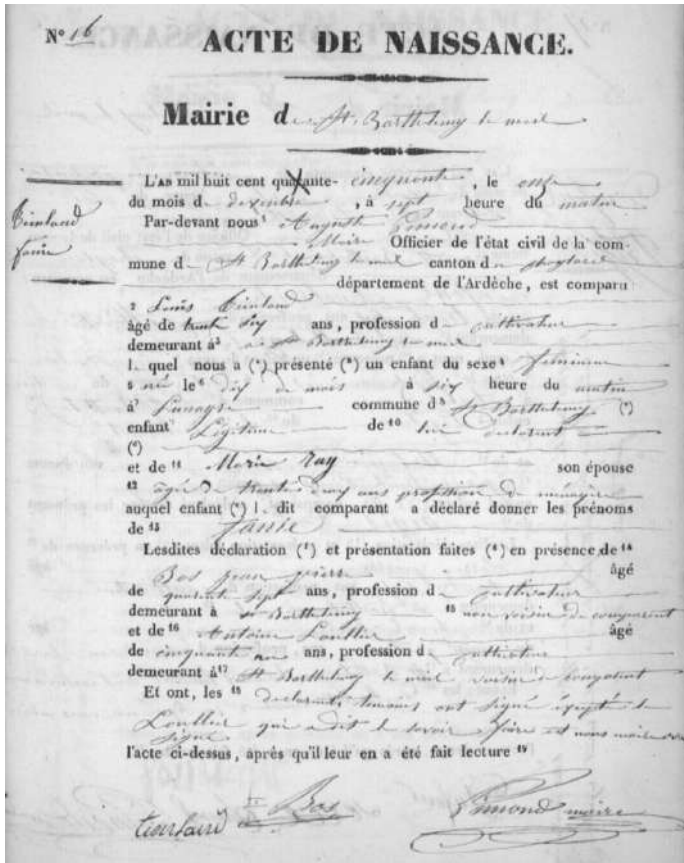 N° 16
ACTE DE NAISSANCE.
Mairie de St Barthelemy le meil
L'AN mil huit cent quarante- cinquante, le onze
du mois de dexembre, à sept heure du matin
Par-devant nous 1 Auguste Pimond
Maire Officier de l'état civil de la com-
mune de St Barthelemy le meil canton du
département de l'Ardèche, est comparu
2 Louis
âgé de trente six ans, profession de cultivateur
demeurant à 3 a St Barthelemy le meil
l. quel nous a (*) présenté (*) un enfant du sexe 4 feminin
5 né le 6 dix de mois à six heure du matin
à 7 commune de 8 St Barthelemy (*)
enfant 9 Legitime de 10 lui declarent
(*)
et de 11 Marie Ray son épouse
12 agée de trente deux ans profession de ménagère
auquel enfant (*) l. dit comparant a déclaré donner les prénoms
de 13 Fanie
Lesdites déclaration (*) et présentation faites (*) en présence de 14
Bos jean pierre âgé
de quarante sept ans, profession de cultivateur
demeurant à St Barthelemy 15 non voisin du comparent
et de 16 Antoine Loullier âgé
de cinquante un ans, profession de cultivateur
demeurant à 17 St Barthelemy le meil voisin du comparent
Et ont, les 18 declarents temoins ont signé éxepté le
Loullier qui a dit de savoir faire et nous maire
signé
l'acte ci-dessus, après qu'il leur en a été fait lecture 19
Bos
Pimond maire